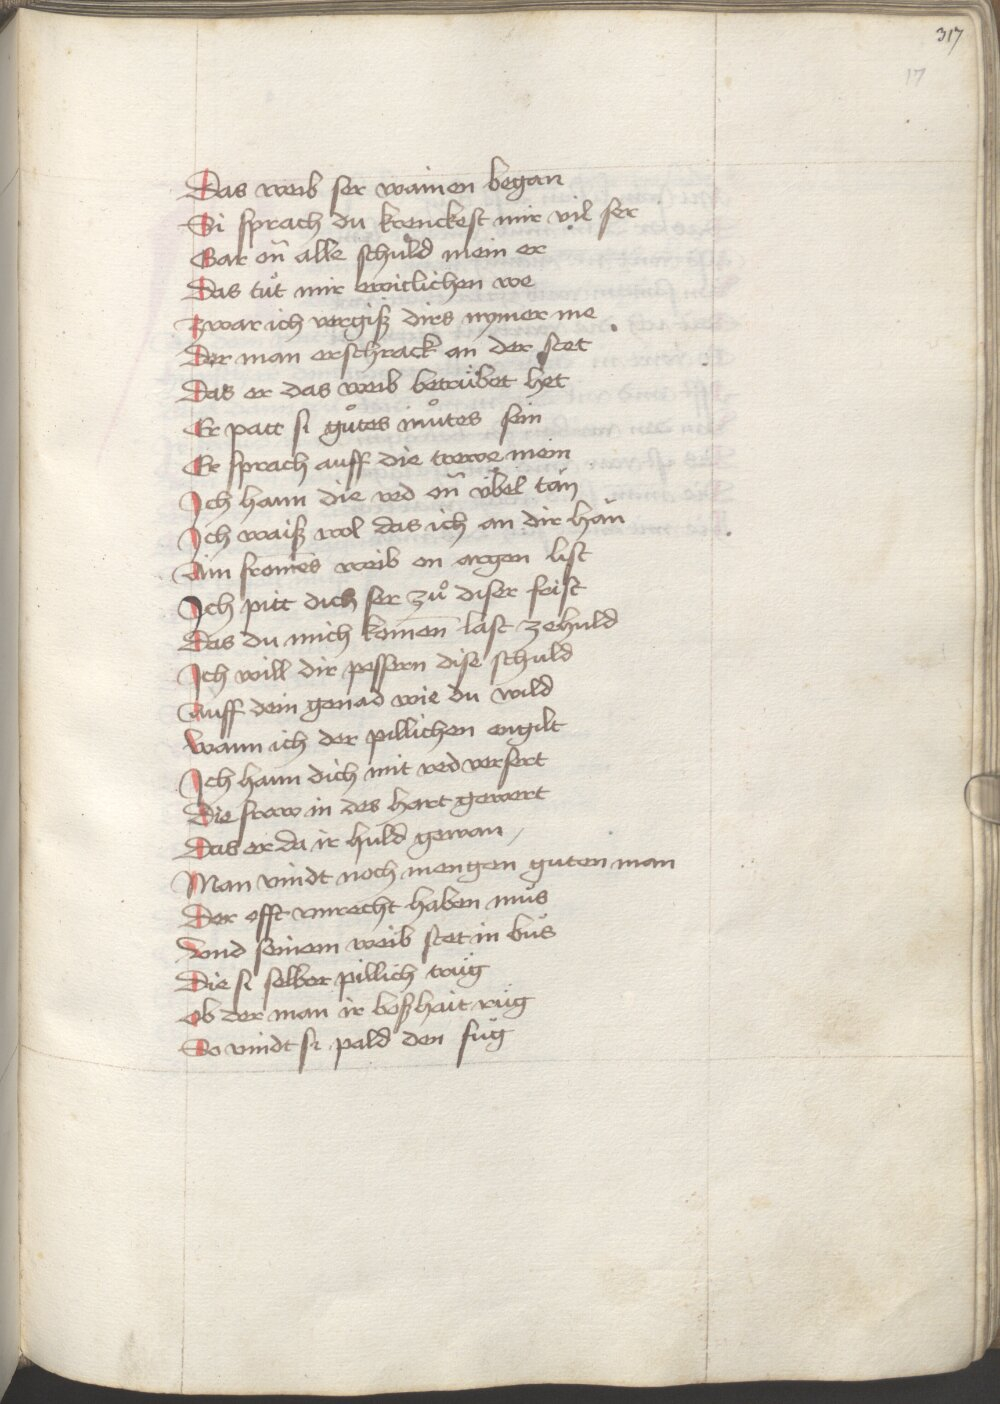 317
17
Das weib ser wainen began
Si sprach du krenckest mir vil ser
Gar on̄ alle schuld mein er
Das tuͦt mir ewiclichen we
Zwar ich vergiß dirs nymer me
Der man erschrack an der stet
Das er das weib betrübet het
Er patt si guͦtes muͦtes sein
Er sprach auff die trewe mein
Ich hann die red on̄ übel tän
Ich waiß wol das ich an dir hän
Ain from̄es weib on argen list
Ich pitt dich ser zuͦ diser frist
Das du mich komen̄ last zehuld
Ich will dir pessern dise schuld
Auff dein genad wie du wild
Wann ich der pillichen engilt
Ich hann dich mit red versert
Die fraw in des hart gewert
Das er da ir huld gewan
Man vindt noch mengen guten man
Der offt vnrecht haben muͦs
Vnd seinem weib stet in buͦs
Die si selber pillich trüg
Ob der man ir boßhait rüg
So vindt si pald den füg